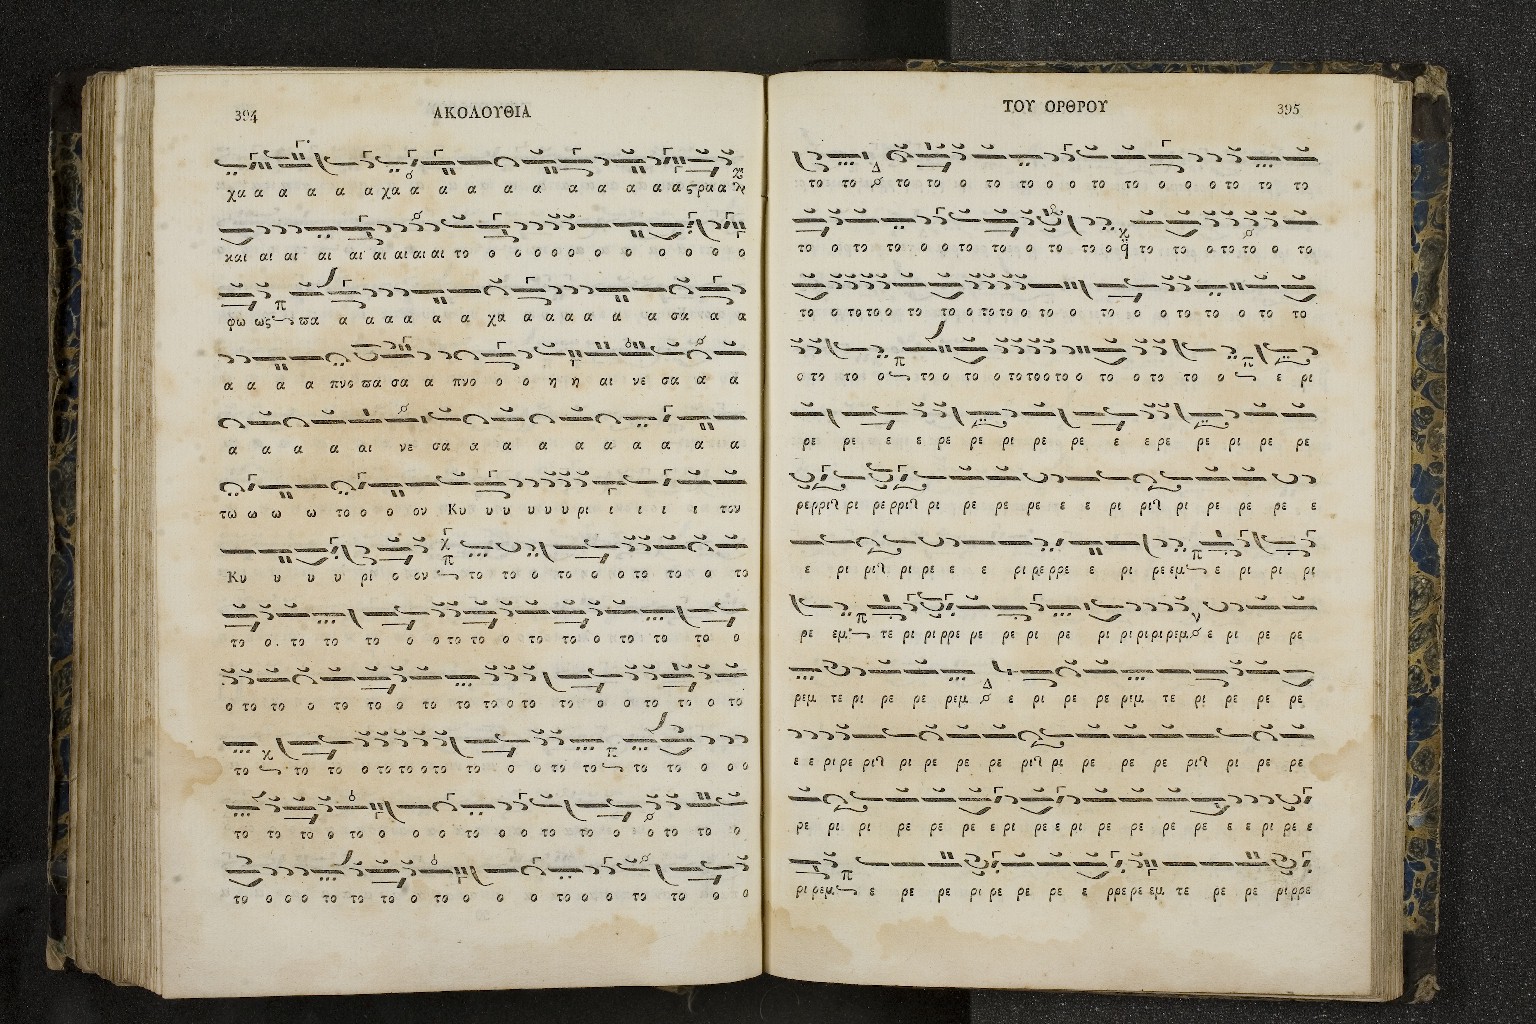 394 ΑΚΟΛΟΥΘΙΑ
χα α α α α α χα α α α α α α α α α α ςρα α
και αι αι αι αι αι αι αι αι το ο ο ο ο ο ο ο ο ο ο ο
φω ως πα α α α α α α χα α α α α α α σα α α
α α α α πνο πα σα α πνο ο ο η η αι νε σα α α
α α α α αι νε σα α α α α α α α α
τω ω ω ω το ο ο ον Κυ υ υ υ υ υ ρι ι ι ι ι τον
Κυ υ υ υ ρι ο ον το το ο το ο ο το το ο το
το ο το το το ο ο το το ο το το ο το το το ο
ο το το ο το το ο το το το ο το το ο ο το το ο το
το το το ο το το ο το το ο ο το το το το ο ο ο
το το το ο το ο ο ο το ο ο το το ο ο το το ο
το ο ο ο το το το το ο ο ο ο ο το ο ο το το ο ο
ΤΟΥ ΟΡΘΡΟΥ 395
το το το το ο το το ο ο το το ο ο ο το το το
το ο το το ο ο το το ο το το ο το το ο το το ο το
το ο το το ο το ο το το το ο το ο το ο το το ο το το
ο το το ο το ο το ο το το το το ο το ο το το το ο ε ρι
ρε ρε ε ε ρε ρε ρι ρε ρε ε ε ρε ρε ρι ρε ρε
ρε ρρ ρι ρε ρρ ρι ρε ρε ρε ε ε ρι ρ ρι ρε ρε ρε ε
ε ρι ρ ρι ρε ε ε ρι ρε ρρε ε ρι ρε εμ ε ρι ρι ρι
ρε εμ τε ρι ρι ρρε ρε ρε ρι ρε ρι ρι ρι ρι ρεμ ε ρι ρε ρε
ρεμ τε ρι ρε ρε ρεμ ε ρι ρε ρε ριμ τε ρι ρε ρε ρε
ε ε ρι ρε ρ ρι ρε ρε ρε ρ ρι ρε ρε ρε ρ ρι ρε ρε
ρε ρι ρι ρε ρε ρε ε ρι ρε ε ρι ρε ρε ρε ρε ε ε ρι ρε ε
ρι ρεμ ε ρε ρε ρι ρε ρε ρε ε ρρε ρε εμ τε ρε ρε ρι ρρε